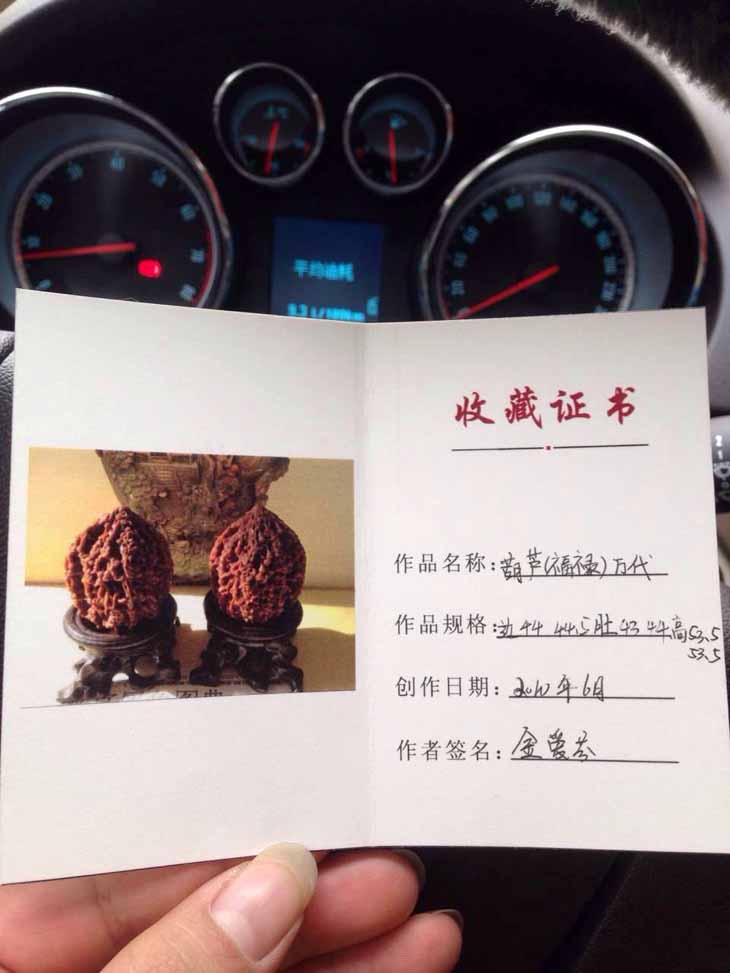 平均油耗
收藏证书
作品名称：葫芦(福禄)万代
作品规格：边44 44.5肚43 44高53.5
53.5
创作日期：2010年6月
作者签名：金爱芬